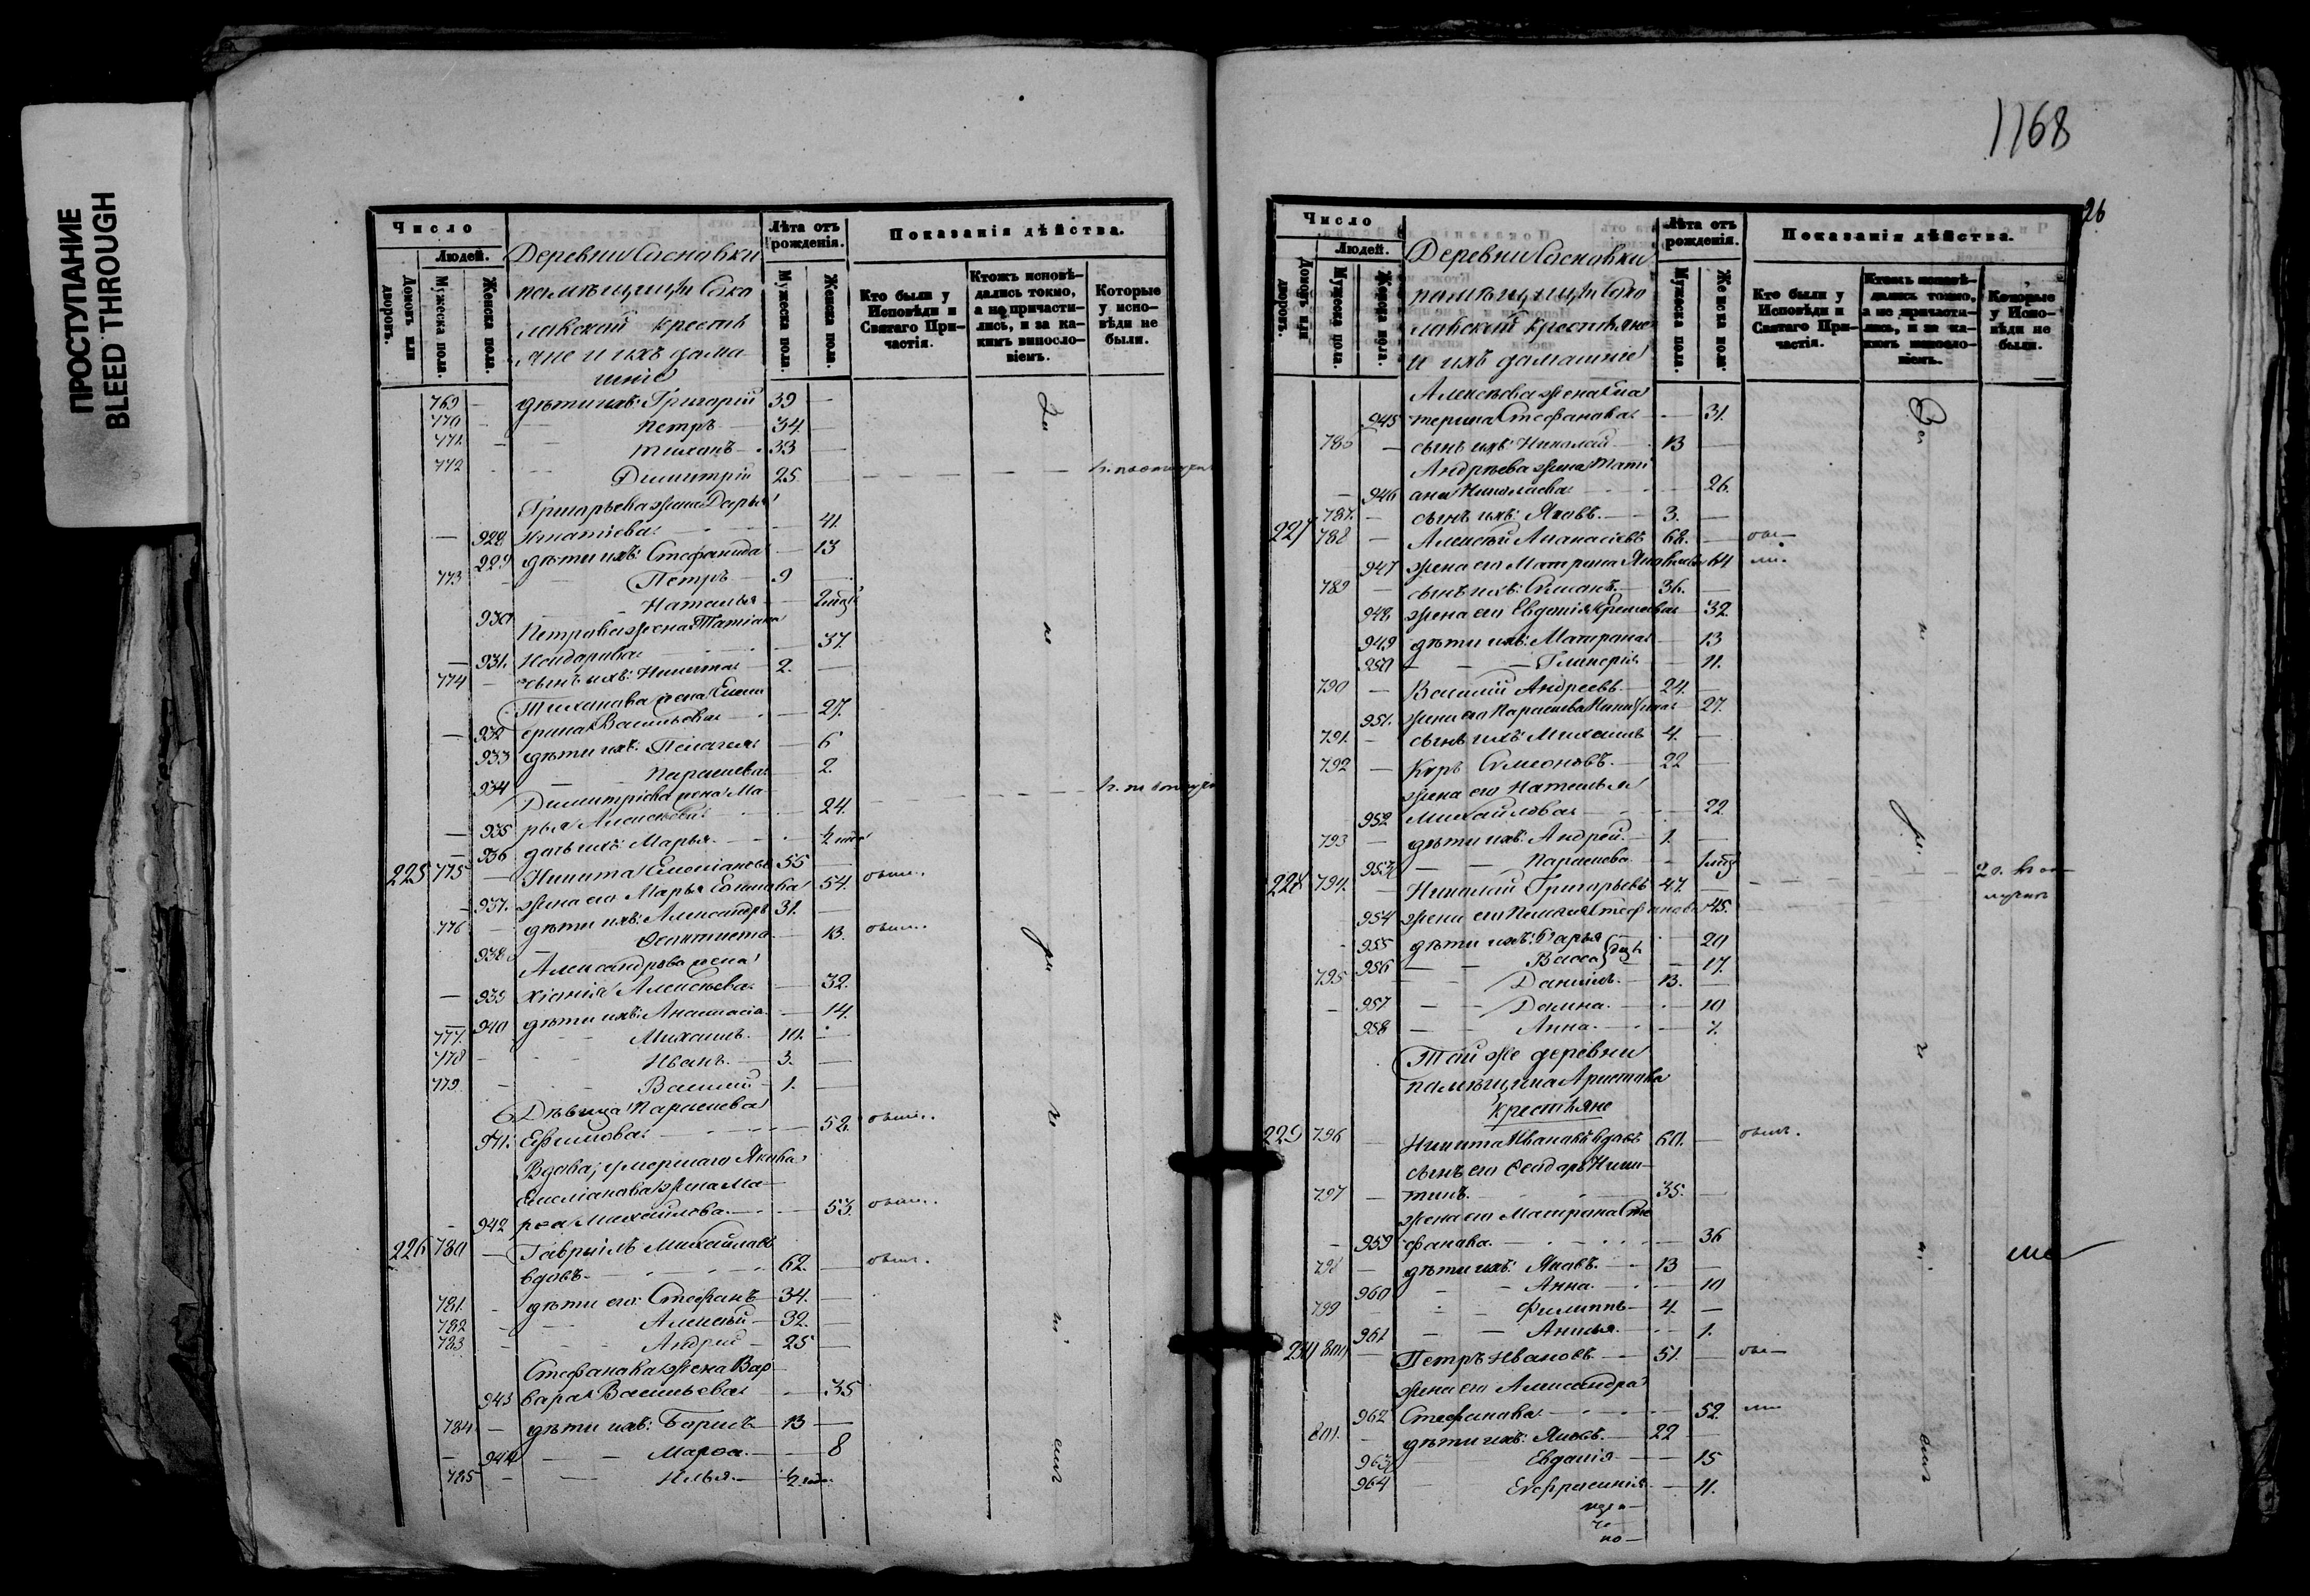 ПРОСТУПАНИЕ
BLEED THROUGH
Число
Людей.
Домовъ или дворовъ.
Мужеска пола.
Женска пола.
Деревни Сосновки
помѣщицы
крестья
яне и ихъ дома
шніе
Лѣта отъ рожденія.
Мужеска пола.
Женска пола.
Показанія дѣйства.
Кто были у Исповѣди и Святаго При-частія.
Ктожъ исповѣ-дались токмо, а не причасти-лись, и за ка-кимъ винословіемъ.
Которые у испо-вѣди не были.
769 — дѣти ихъ: Григорій 39 —
770 — Петръ 34. —
771. — Тихонъ 33 —
772 Димитрій 25.
Григорьева жена Дарья
— 928 Игнатіева 41.
929 дѣти ихъ: Стефанида — 13
773 — Петръ 9 —
930 Наталья
Петрова жена Татіана
— 931. 37.
774 — сынъ ихъ: Никита 2. —
Тихонова жена Екат
— 932 ерина Васильева — 27.
933 дѣти ихъ: Пелагея — 6
934 Параскева 2.
Димитріева жена Ма-
— 935 рья Алексѣева 24.
— 936 дочь ихъ: Марья ½ года
225 775 — Никита Емеліановъ 55 —
— 937. жена его Марья 54.
776 — дѣти ихъ: Александръ 31. —
938 Феоктиста 13.
Александрова жена
— 939 Хіонія Алексѣева 32.
940 дѣти ихъ: Анастасія — 14.
777. Михаилъ 10. —
778 — Иванъ 3. —
779. Василій 1. —
Дѣвица Параскева
941. Ефимова 52.
Вдова, умершаго Якова
Емеліанова жена Ма-
942 рѳа Михайлова 53.
226 780 — Гавріилъ Михайловъ
вдовъ 62. —
781. — дѣти его: Стефанъ 34. —
782 Алексѣй 32. —
783 Андрей 25 —
Стефанова жена Вар-
943 вара Васильева — 35
784 — дѣти ихъ: Борисъ 13 —
— 944 Марѳа — 8
785 — Илья ½ года
1168
26
Число
Людей.
Домовъ или дворовъ.
Мужеска пола.
Женска пола.
Деревни Сосновки
помѣщицы
крестьяне
и ихъ домашніе
Лѣта отъ рожденія.
Мужеска пола.
Женска пола.
Показанія дѣйства.
Кто были у Исповѣди и Святаго При-частія.
Ктожъ исповѣ-дались токмо, а не причасти-лись, и за ка-кимъ винословіемъ.
Которые у Испо-вѣди не были.
Алексѣева жена Ека
945 терина Стефанова — 31.
786 — сынъ ихъ: Николай 13 —
Андреева жена Тати
— 946 ана Николаева — 26.
787. — сынъ ихъ: Яковъ 3. —
227 788 — Алексѣй Афанасіевъ 68. —
947 жена его Матрона Яковлева 64
789 — сынъ ихъ: Симеонъ 36. —
948 жена его Евдокія 32.
949 дѣти ихъ: Матрона — 13
950 Гликерія — 11.
790 — Василій Андреевъ 24. —
951. жена его Параскева 27.
791. — сынъ ихъ: Михаилъ 4. —
792 — Киръ Симеоновъ 22 —
жена его Наталья
952 Михайлова 22.
793 — дѣти ихъ: Андрей 1. —
953 Параскева
228 794. — Николай Григорьевъ 47. —
954 жена его Стефанова 45.
955 дѣти ихъ: Дарья 20
956 Васса 17.
795 Даніилъ 13. —
957 Домна 10
958 Анна 7.
Той же деревни
помѣщика Аристова
крестьяне
229 796 — Никита Ивановъ вдовъ 60. —
сынъ его Ѳеодоръ Ники-
797 — тинъ 35. —
жена его Матрона Сте
— 959 фанова 36
798 — дѣти ихъ: Яковъ 13 —
960 Анна 10
799 Филиппъ 4. —
961 Анисья 1.
230 800 — Петръ Ивановъ 51. —
жена его Александра
962 Стефанова 52
801. — дѣти ихъ: Яковъ 22 —
963 Евдокія — 15
964 Евфросинія — 11.